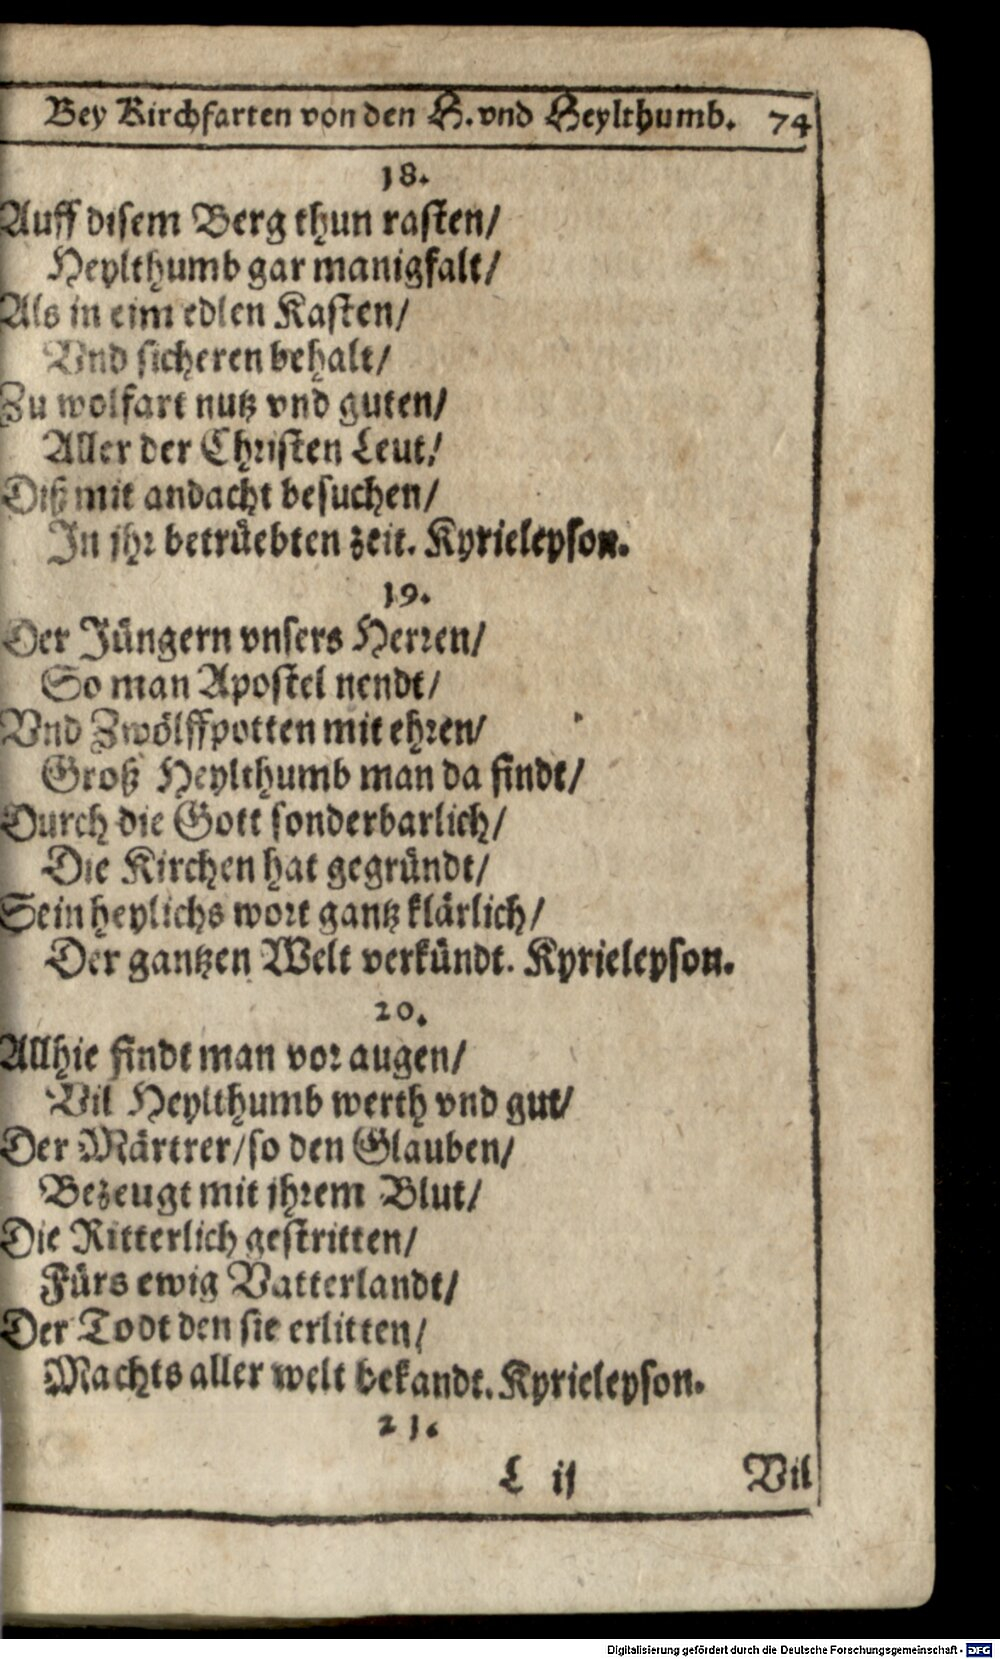 Bey Kirchfarten von den H. vnd Heylthumb. 74
18.
Auff disem Berg thun rasten/
Heylthumb gar manigfalt/
Als in eim edlen Kasten/
Vnd sicheren behalt/
Zu wolfart nutz vnd guten/
Aller der Christen Leut/
Diß mit andacht besuchen/
In jhr betrüebten zeit. Kyrieleyson.
19.
Der Jüngern vnsers Herren/
So man Apostel nendt/
Vnd Zwölffpotten mit ehren/
Groß Heylthumb man da findt/
Durch die Gott sonderbarlich/
Die Kirchen hat gegründt/
Sein heylichs wort gantz klärlich/
Der gantzen Welt verkündt. Kyrieleyson.
20.
Allhie findt man vor augen/
Vil Heylthumb werth vnd gut/
Der Märtrer/so den Glauben/
Bezeugt mit jhrem Blut/
Die Ritterlich gestritten/
Fürs ewig Vatterlandt/
Der Todt den sie erlitten/
Machts aller welt bekandt. Kyrieleyson.
21.
L ij Vil
Digitalisierung gefördert durch die Deutsche Forschungsgemeinschaft - DFG